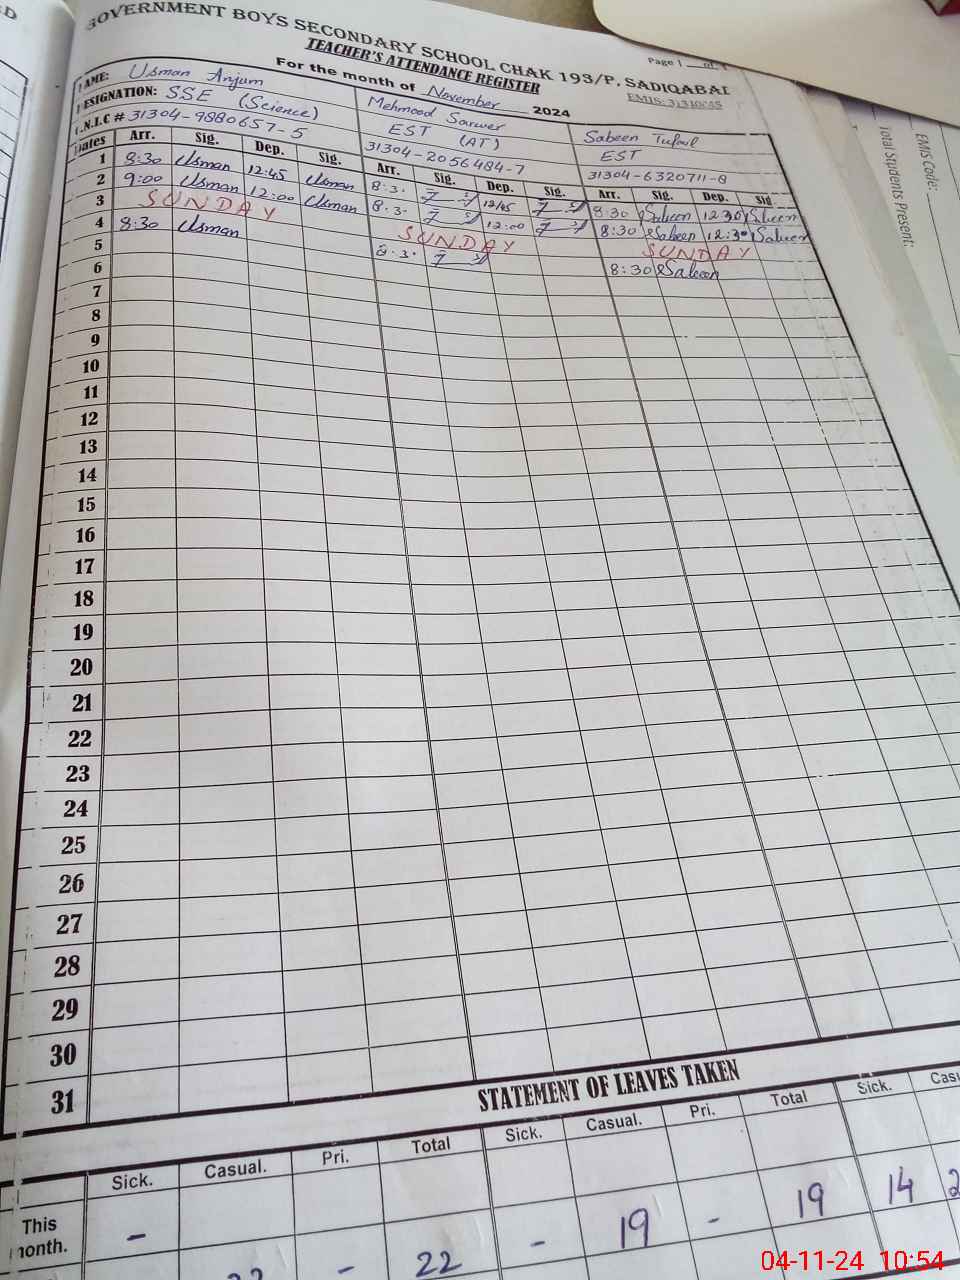 GOVERNMENT BOYS SECONDARY SCHOOL CHAK 193/P, SADIQABAD
TEACHER'S ATTENDANCE REGISTER
Page 1 of
For the month of November 2024
NAME: Usman Anjum
DESIGNATION: SSE (Science)
C.N.I.C # 31304-9880657-5
Mehmood Sarwer
EST (AT)
31304-2056484-7
Sabeen Tufail
EST
31304-6320711-8
Dates Arr. Sig. Dep. Sig. Arr. Sig. Dep. Sig. Arr. Sig. Dep. Sig
1 8:30 Usman 12:45 Usman 8:3. 12:45 8:30 Sabeen 12:30 Sabeen
2 9:00 Usman 12:00 Usman 8:3. 12:00 8:30 Sabeen 12:30 Sabeen
3 SUNDAY SUNDAY SUNDAY
4 8:30 Usman 8:3. 8:30 Sabeen
5
6
7
8
9
10
11
12
13
14
15
16
17
18
19
20
21
22
23
24
25
26
27
28
29
30
31
STATEMENT OF LEAVES TAKEN
Sick. Casual. Pri. Total Sick. Casual. Pri. Total Sick. Cas
This month. - 22 - 22 - 19 - 19 14
EMIS Code:
Total Students Present:
04-11-24 10:54